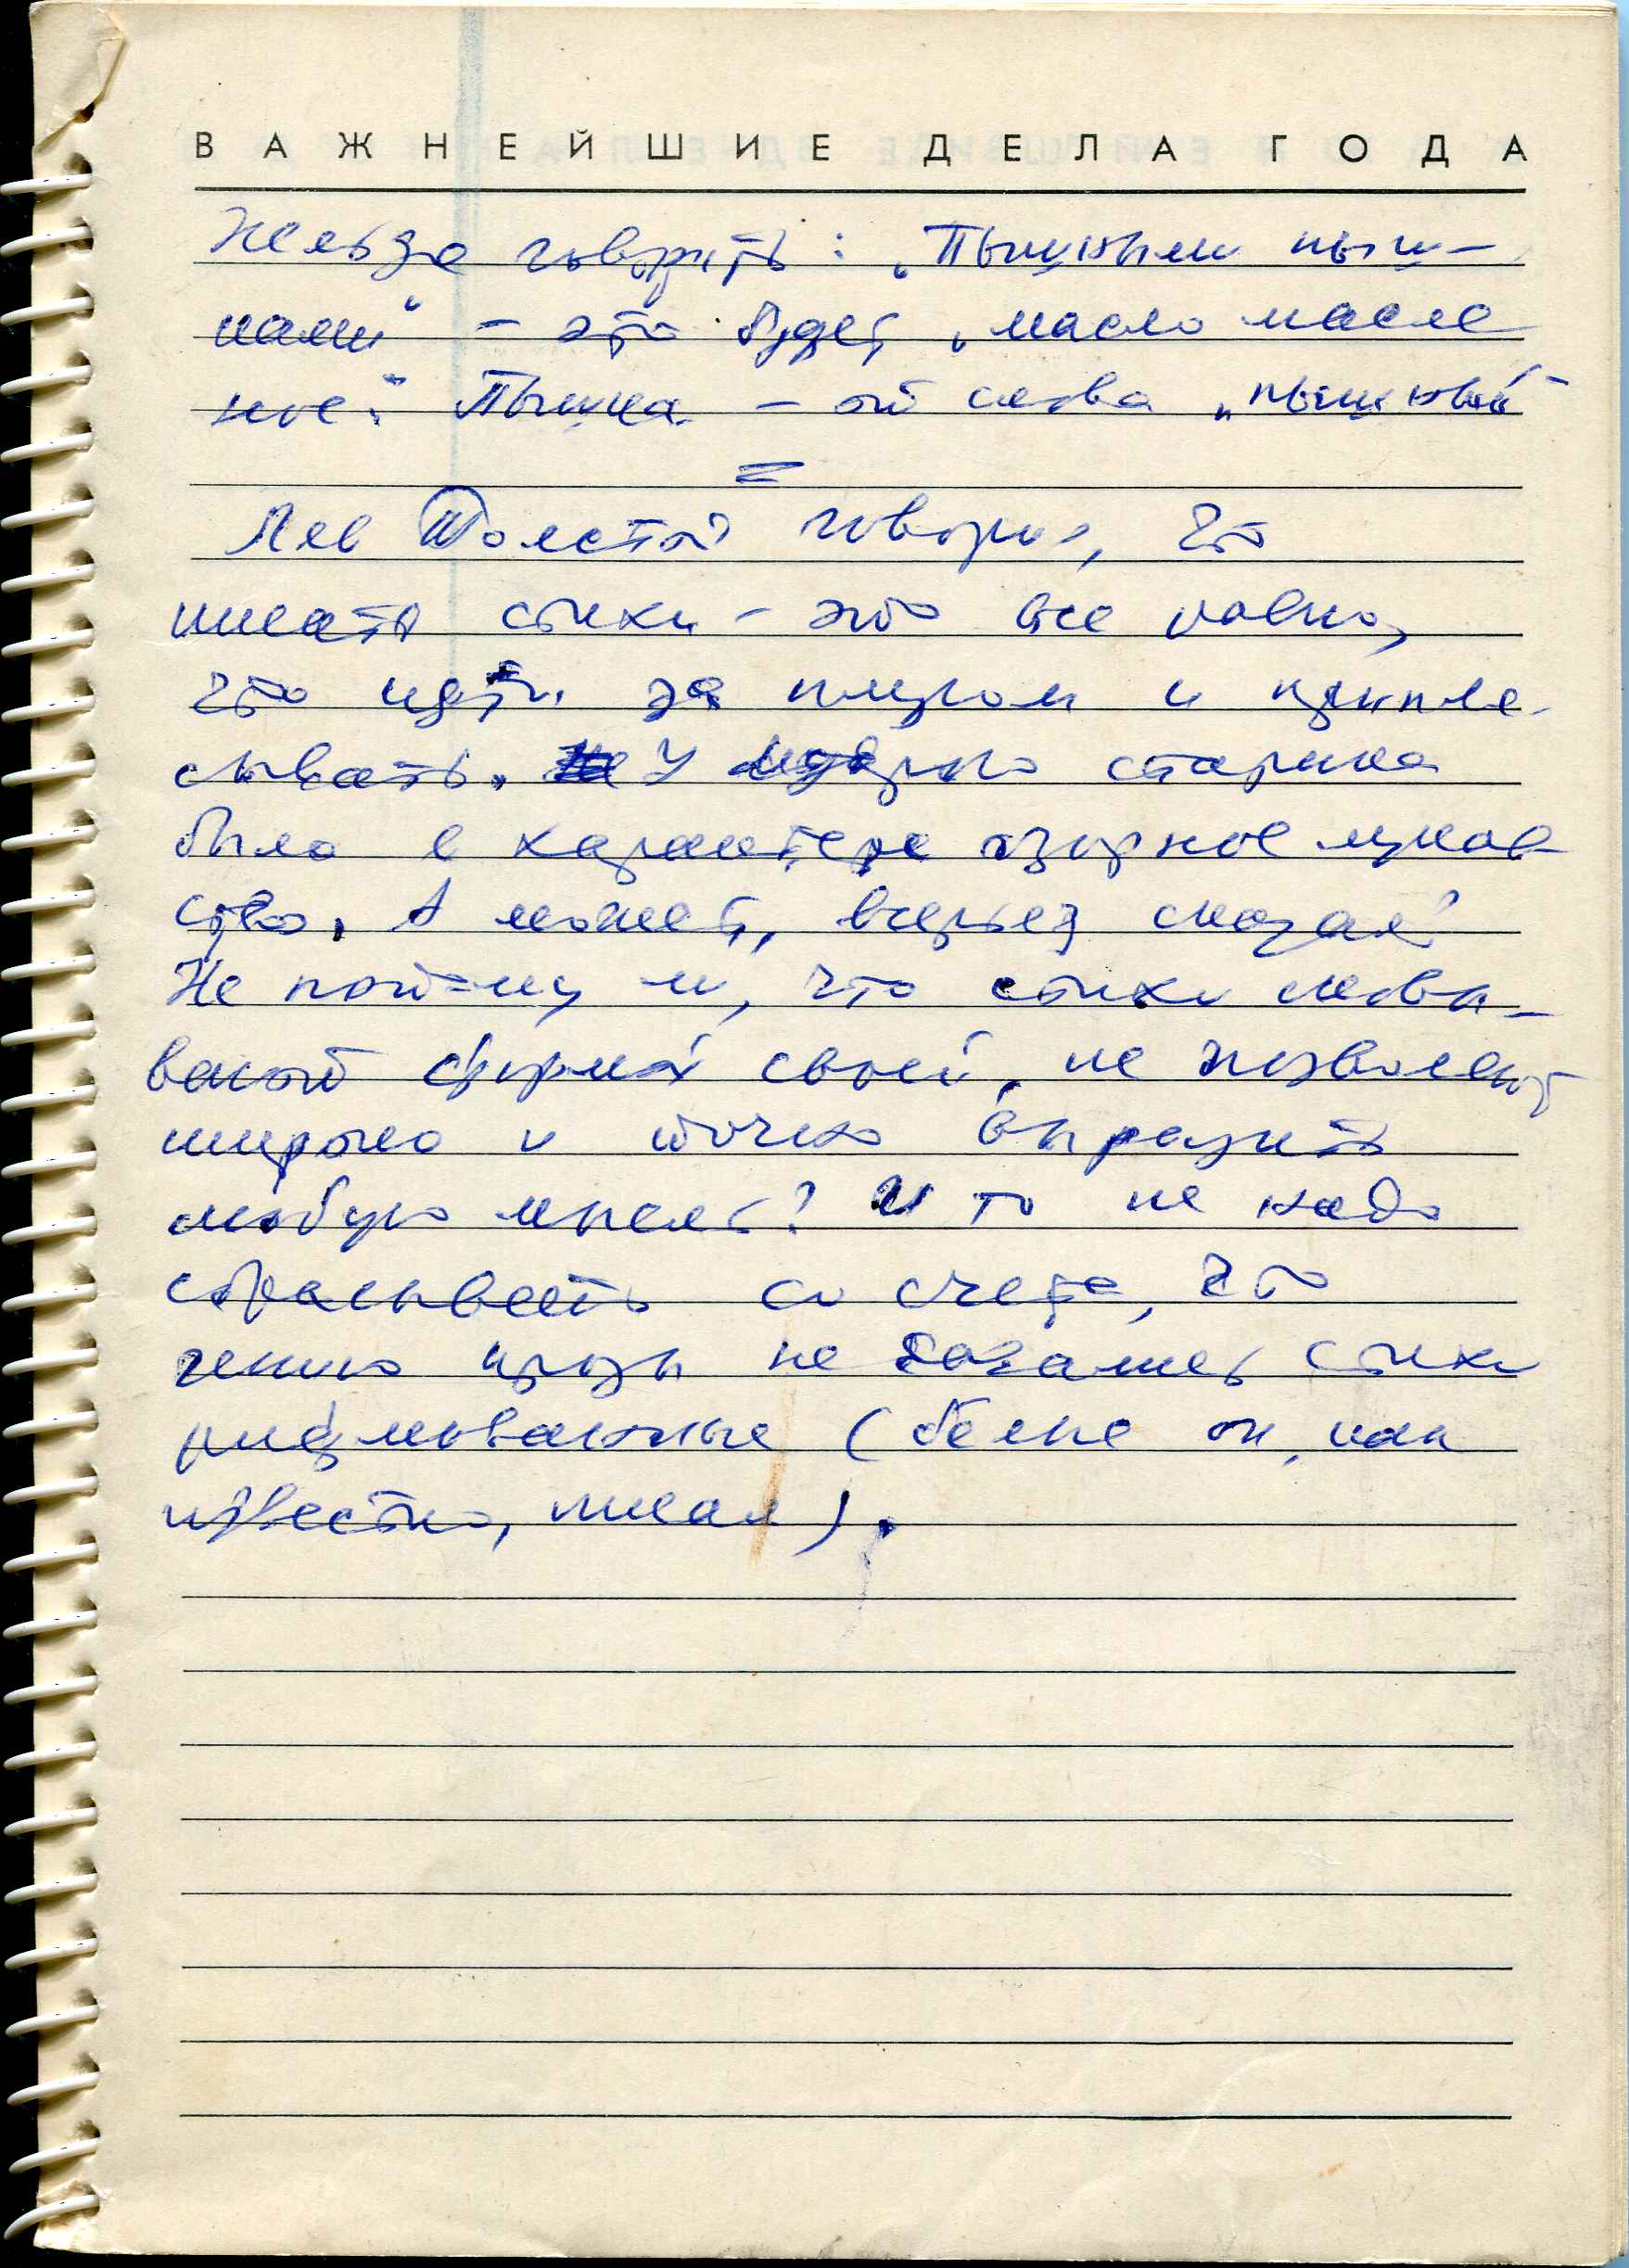 ВАЖНЕЙШИЕ ДЕЛА ГОДА
Нельзя говорить: „Пышными пыш-
ками" – это будет „масло масле
ное". Пышка – от слова „пышный"
=
Лев Толстой говорил, что
писать стихи – это все равно,
что идти за плугом и припля-
сывать. У мудрого старика
было в характере озорное лукав-
ство. А может, всерьез сказал?
Не потому ли, что стихи сковы-
вают формой своей, не позволяют
широко и точно выразить
любую мысль? И то не надо
сбрасывать со счета, что
гений прозы не писал стихи
рифмованные (белые он, как
известно, писал).